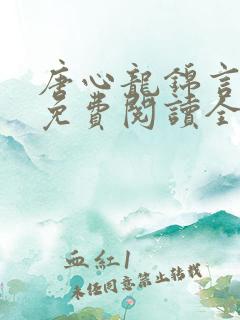 唐心龍錦言
免費閱讀全
血紅1
未经同意禁止转载